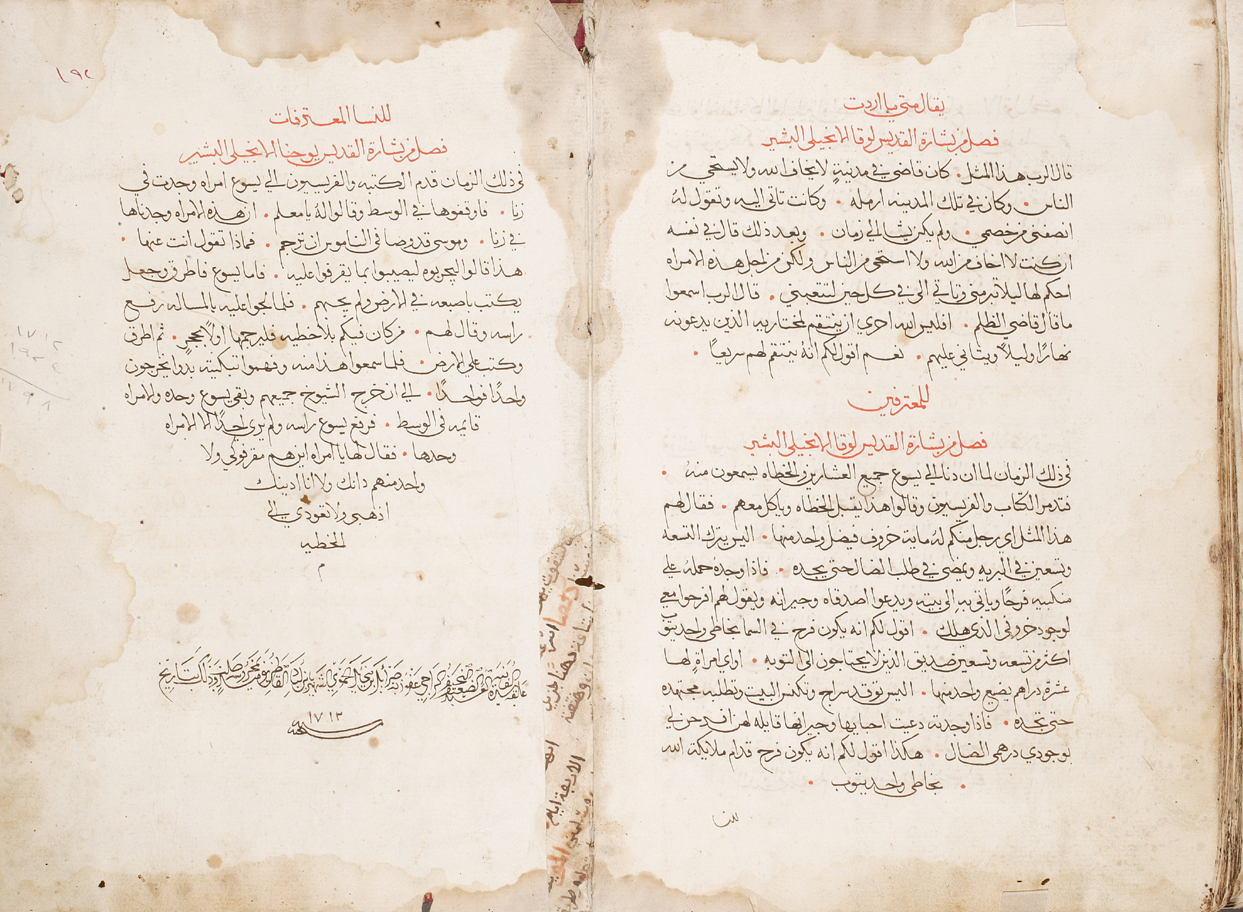 يقال متى ما اردت
فصل من بشارة القديس لوقا الانجيلي البشير
قال الرب هذا المثل. كان قاضي في مدينةٍ لا يخاف الله ولا يستحي من
الناس. وكان في تلك المدينه ارمله. وكانت تاتي اليه وتقول لهُ
انصفني من خصمي. ولم يكن يشا الى زمان. وبعد ذلك قال في نفسه
ان كنت لا اخاف من الله ولا استحي من الناس ولكن من اجل هذه الامراه
احكم لها ليلا تبرمني وتاتي الي في كل حين لتتعبني. قال الرب اسمعوا
ما قال قاضي الظلم. افليس الله احري ان ينتقم لمختاريه الذين يدعونه
نهارًا وليلاً ويتانى عليهم. نعم اقول لكم انهُ ينتقم لهم سريعاً.
للمعترفين
فصل من بشارة القديس لوقا الانجيلي البشير
في ذلك الزمان لما ان دنا الى يسوع جميع العشارين والخطاه يسمعون منهُ.
فتدمر الكتاب والفريسيون وقالوا هذا يقبل الخطاه وياكل معهم. فقال لهم
هذا المثل اي رجل منكم لهُ ماية خروف فيضل واحد منها. اليس يترك التسعه
وتسعين في البريه ويمضي في طلب الضال حتى يجده. فاذا وجدهُ حملهُ على
منكبيه فرحًا وياتي بهِ الى بيته ويدعوا اصدقاه وجيرانه ويقول لهم افرحوا معي
لوجود خروفي الذي هلك. اقول لكم انه يكون فرح في السما بخاطي واحد يتوب
اكثر من تسعه وتسعين صديق الذين لا يحتاجون الى التوبه. او اي امراةٍ لها
عشرة دراهم يضيع واحد منها. اليس توقد سراج وتكنس البيت وتطلبه مجتهده
حتى تجده. فاذا وجدته دعت احبابها وجيرانها قايله لهن افرحن لي
لوجودي درهمي الضال. هكذا اقول لكم انه يكون فرح قدام ملايكة الله
بخاطي واحد يتوب.
للنسا
١٩٢
للنسا المعترفات
فصل من بشارة القديس يوحنا الانجيلي البشير
في ذلك الزمان قدم الكتبه والفريسيون الى يسوع امراه وجدت في
زنا. فاوقفوها في الوسط وقالوا لهُ يا معلم. ان هذه الامراه وجدناها
في زنا. وموسى قد وصانا في الناموس ان ترجم. فماذا تقول انت عنها.
هذا قالوا ليجربوه ليصيبوا بما يقرفوا عليه. فاما يسوع فاطرق وجعل
يكتب باصبعه في الارض ولم يجبهم. فلما الجوا عليه بالمساله رفع
راسه وقال لهم. من كان فيكم بلا خطيه فليرجمها اولاً بحجرٍ. ثم اطرق
وكتب على الارض. فلما سمعوا هذا منه وفهموا تبكيته بدوا يخرجون
واحدًا فواحدًا. الى ان خرج الشيوخ جميعهم وبقي يسوع وحده والامراه
قايمه في الوسط. فرفع يسوع راسه ولم يري احدًا الا الامراه
وحدها. فقال لها يا امراه اين هم مقرفوكي ولا
واحد منهم دانك ولا انا ادينك
اذهبي ولا تعودي الى
الخطيه
م
سنة ١٧١٣